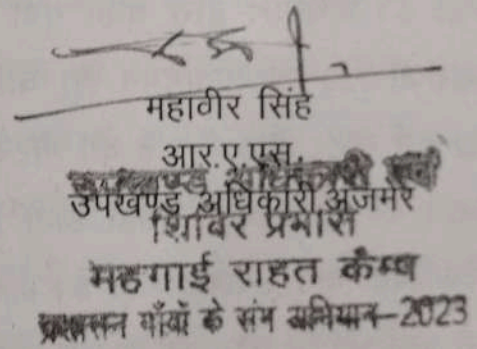 महावीर सिंह
आर.ए.एस.
उपखण्ड अधिकारी एवं
उपखण्ड अधिकारी,अजमेर
शिविर प्रभारी
महगाई राहत कैम्प
प्रशासन गाँवों के संग अभियान-2023